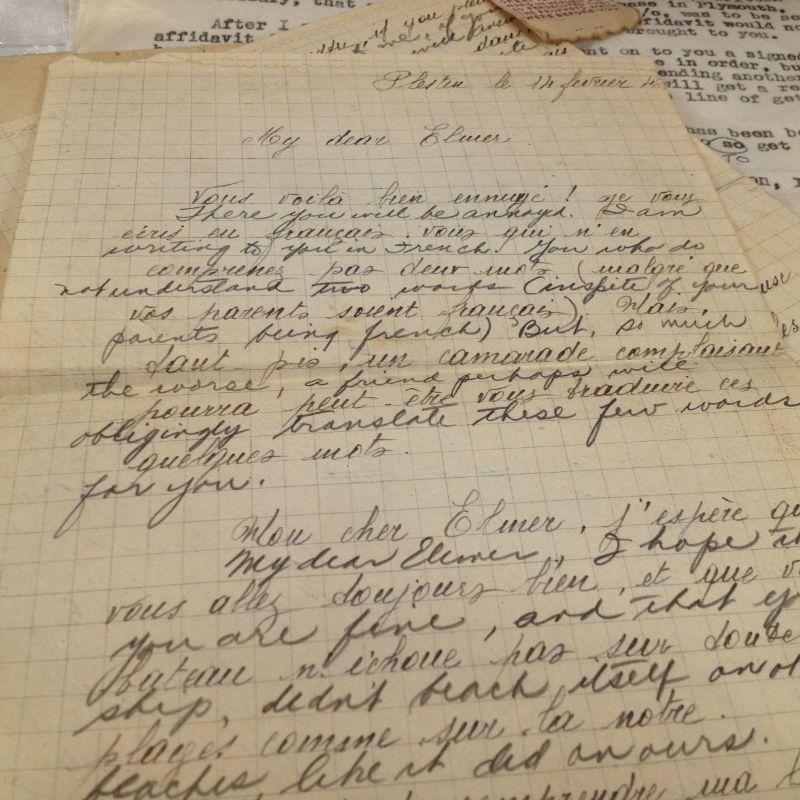 After I
affidavit
ase in Plymouth
was to be se
ffidavit would no
rought to you.
ent on to you a signed
e in order, bu
ending another
will get a re
line of get
has been be
so get
TO
if you
Plestin le 14 fevrier
My dear Elmer
Vous voilà bien ennuyé ! Je vous
There you will be annoyed. I am
écris en français. vous qui n'en
writing to you in French! You who do
comprenez pas deux mots (malgré que
not understand two words (inspite of your
vos parents soient français) Mais,
parents being french) But, so much
tant pis, un camarade complaisant
the worse, a friend perhaps will
pourra peut-être vous traduire ces
obligingly translate these few words
quelques mots.
for you.
Mon cher Elmer, j'espère qu
My dear Elmer, I hope
vous allez toujours bien, et que v
you are fine, and that yo
bateau n'échoue pas sur toute
ship, didn't beach itself on
plages comme sur la notre.
beaches, like it did on ours.
comprendre ma